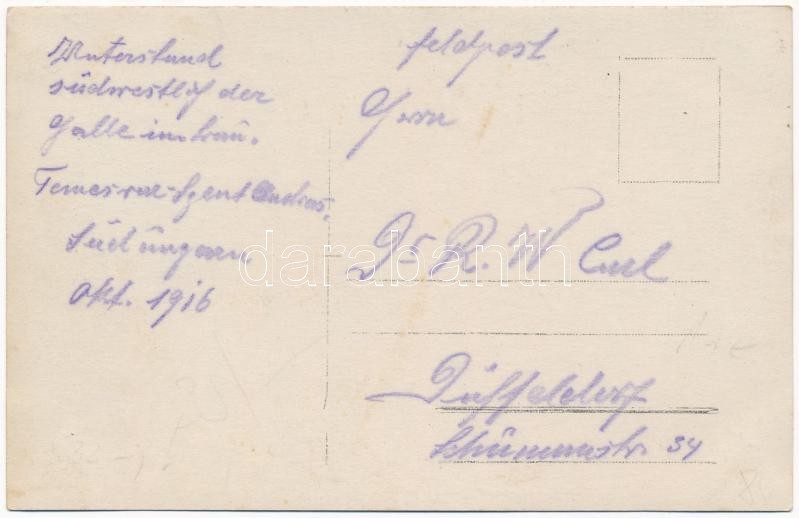 Unterstand
südwestlich der
Halle im Bau.
Temesvar-Szent Andras,
Südungarn
Okt. 1916
Feldpost
Herrn
Dr R. W Carl
Düsseldorf
Schümannstr. 34
darabanth